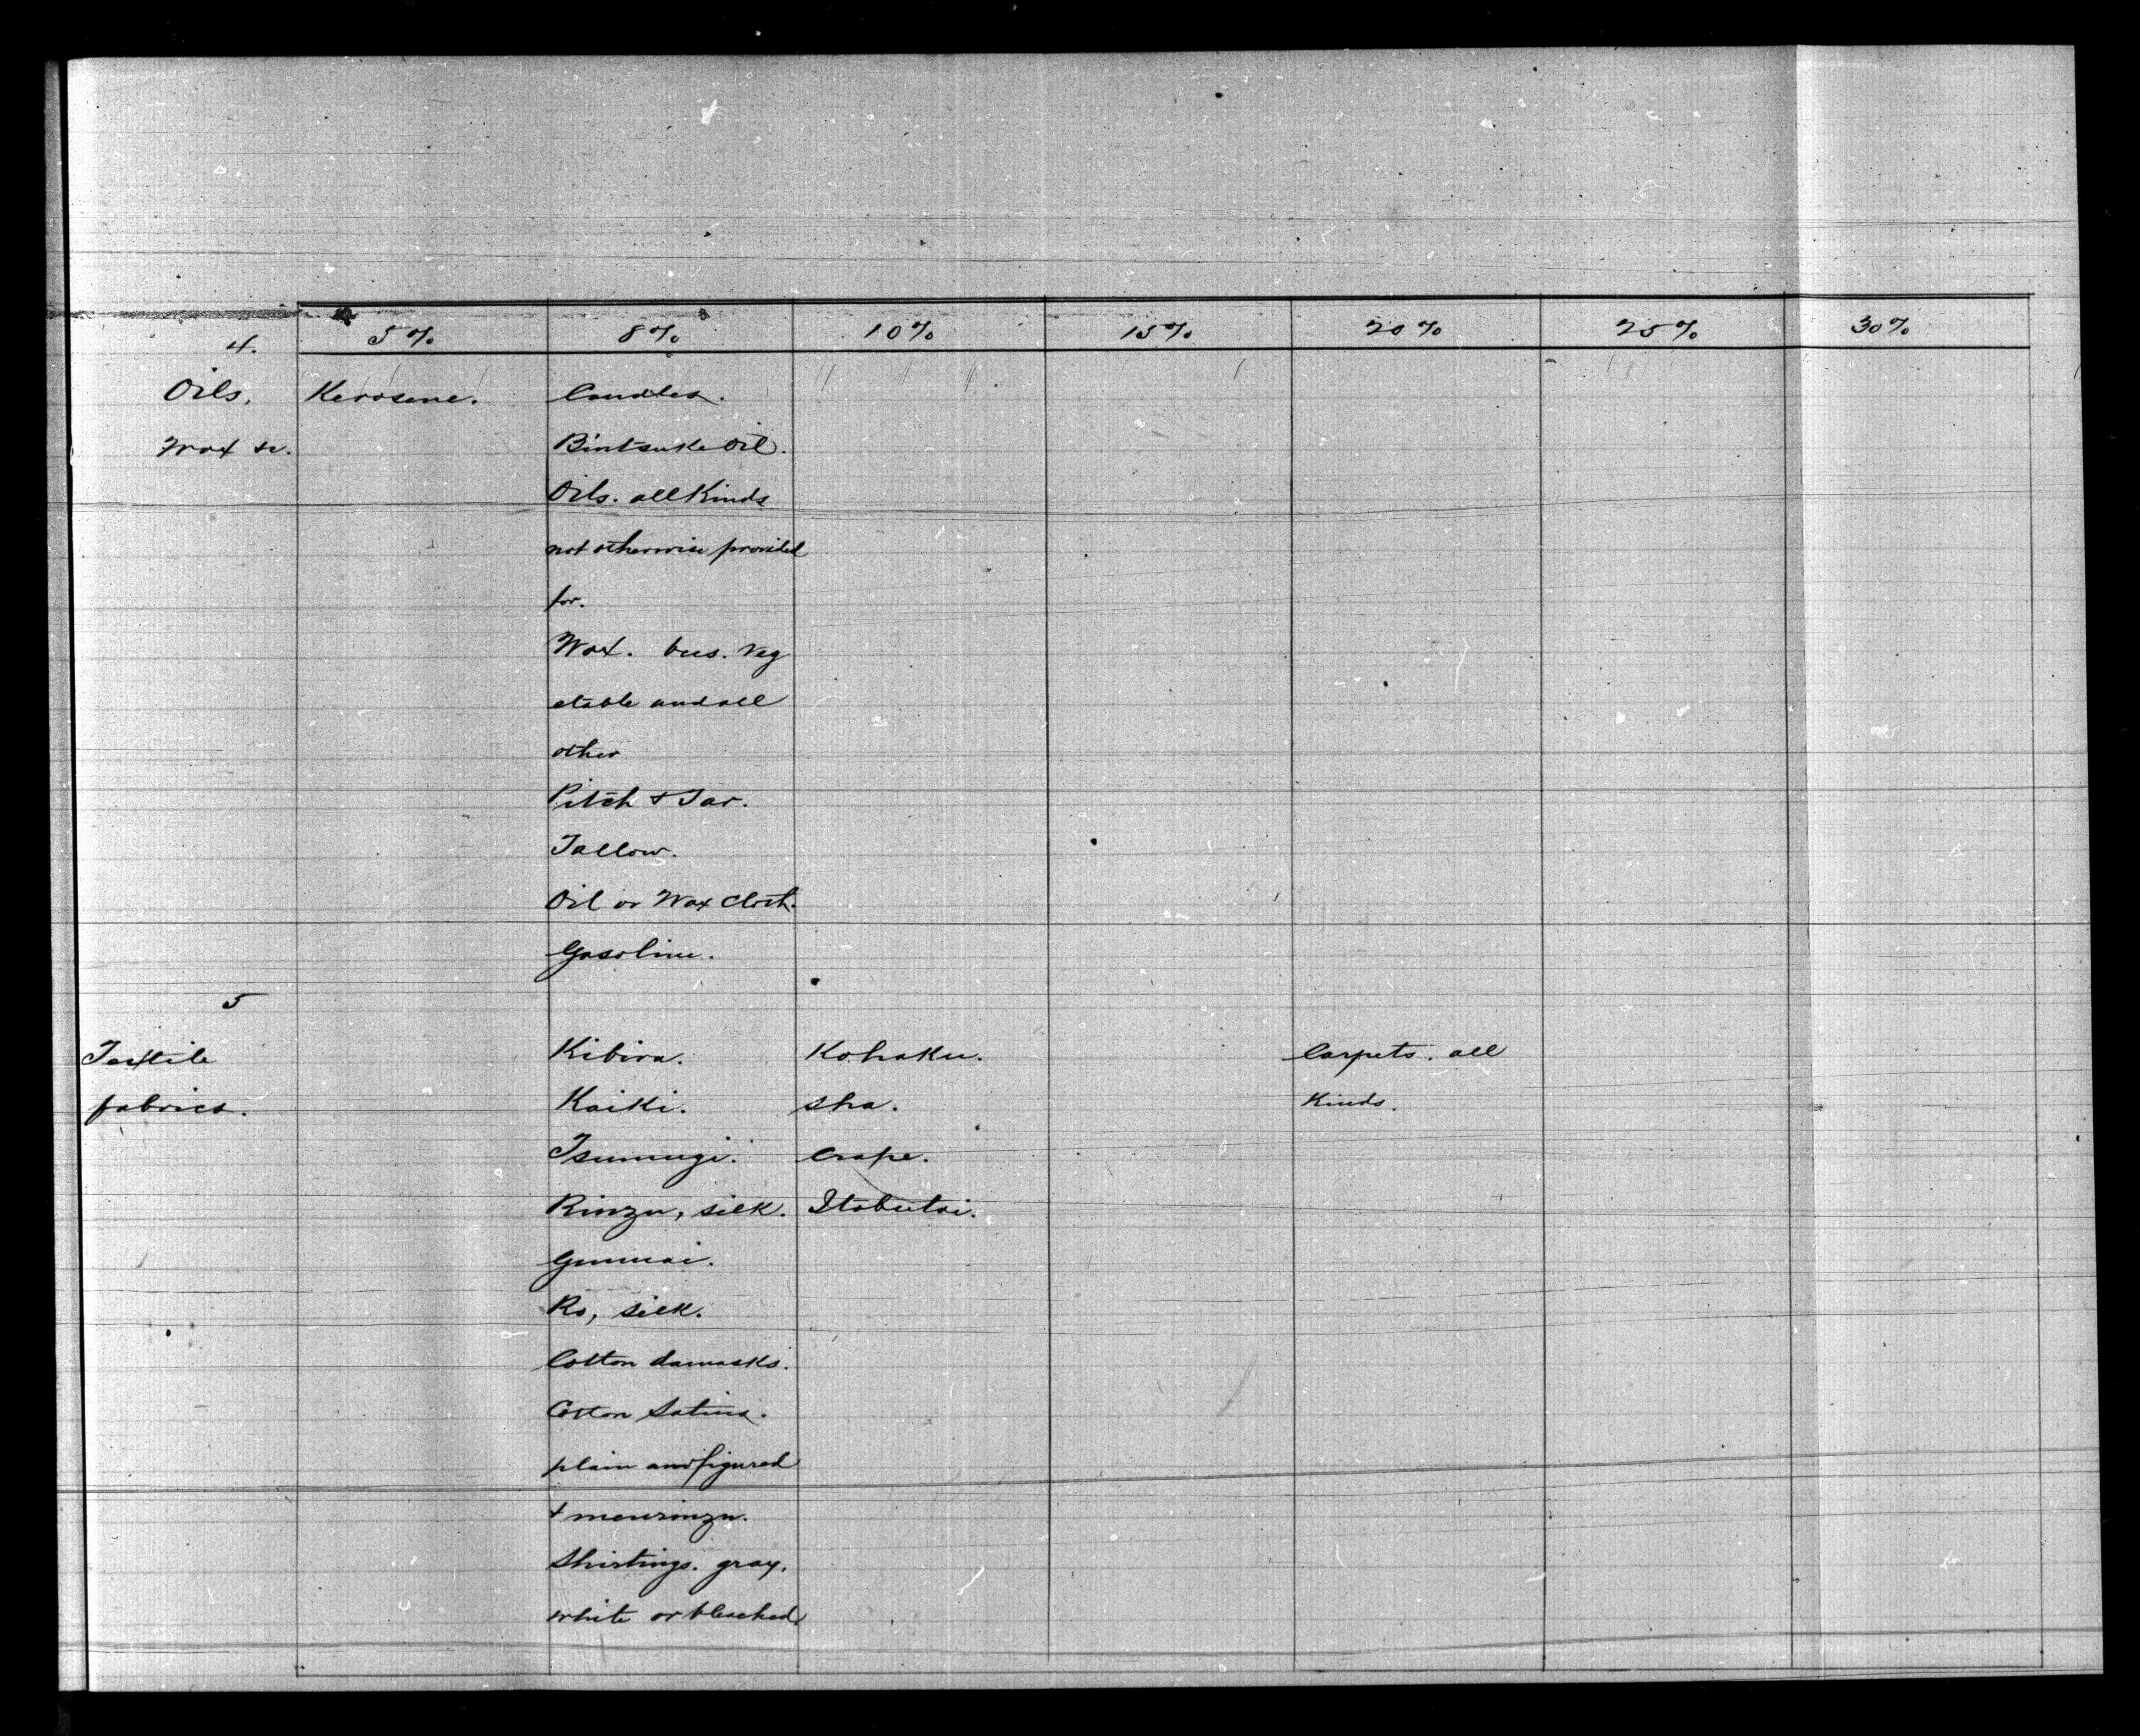 5% 8% 10% 15% 20% 25% 30%
4.
Oils, Kerosene. Candles.
Wax &c. Bintsuke oil.
Oils. all kinds
not otherwise provided
for.
Wax. bees. veg
etable and all
other
Pitch & Tar.
Tallow.
Oil or Wax cloth.
Gasoline.
5
Textile Kibira. Kohaku. Carpets. all
fabrics. Kaiki. Sha. kinds.
Tsumugi. Crape.
Rinzu, silk. Itobutai.
Gunnai.
Ro, silk.
Cotton damasks.
Cotton Satins.
plain and figured
& menrinzu.
Shirtings. gray.
white or bleached